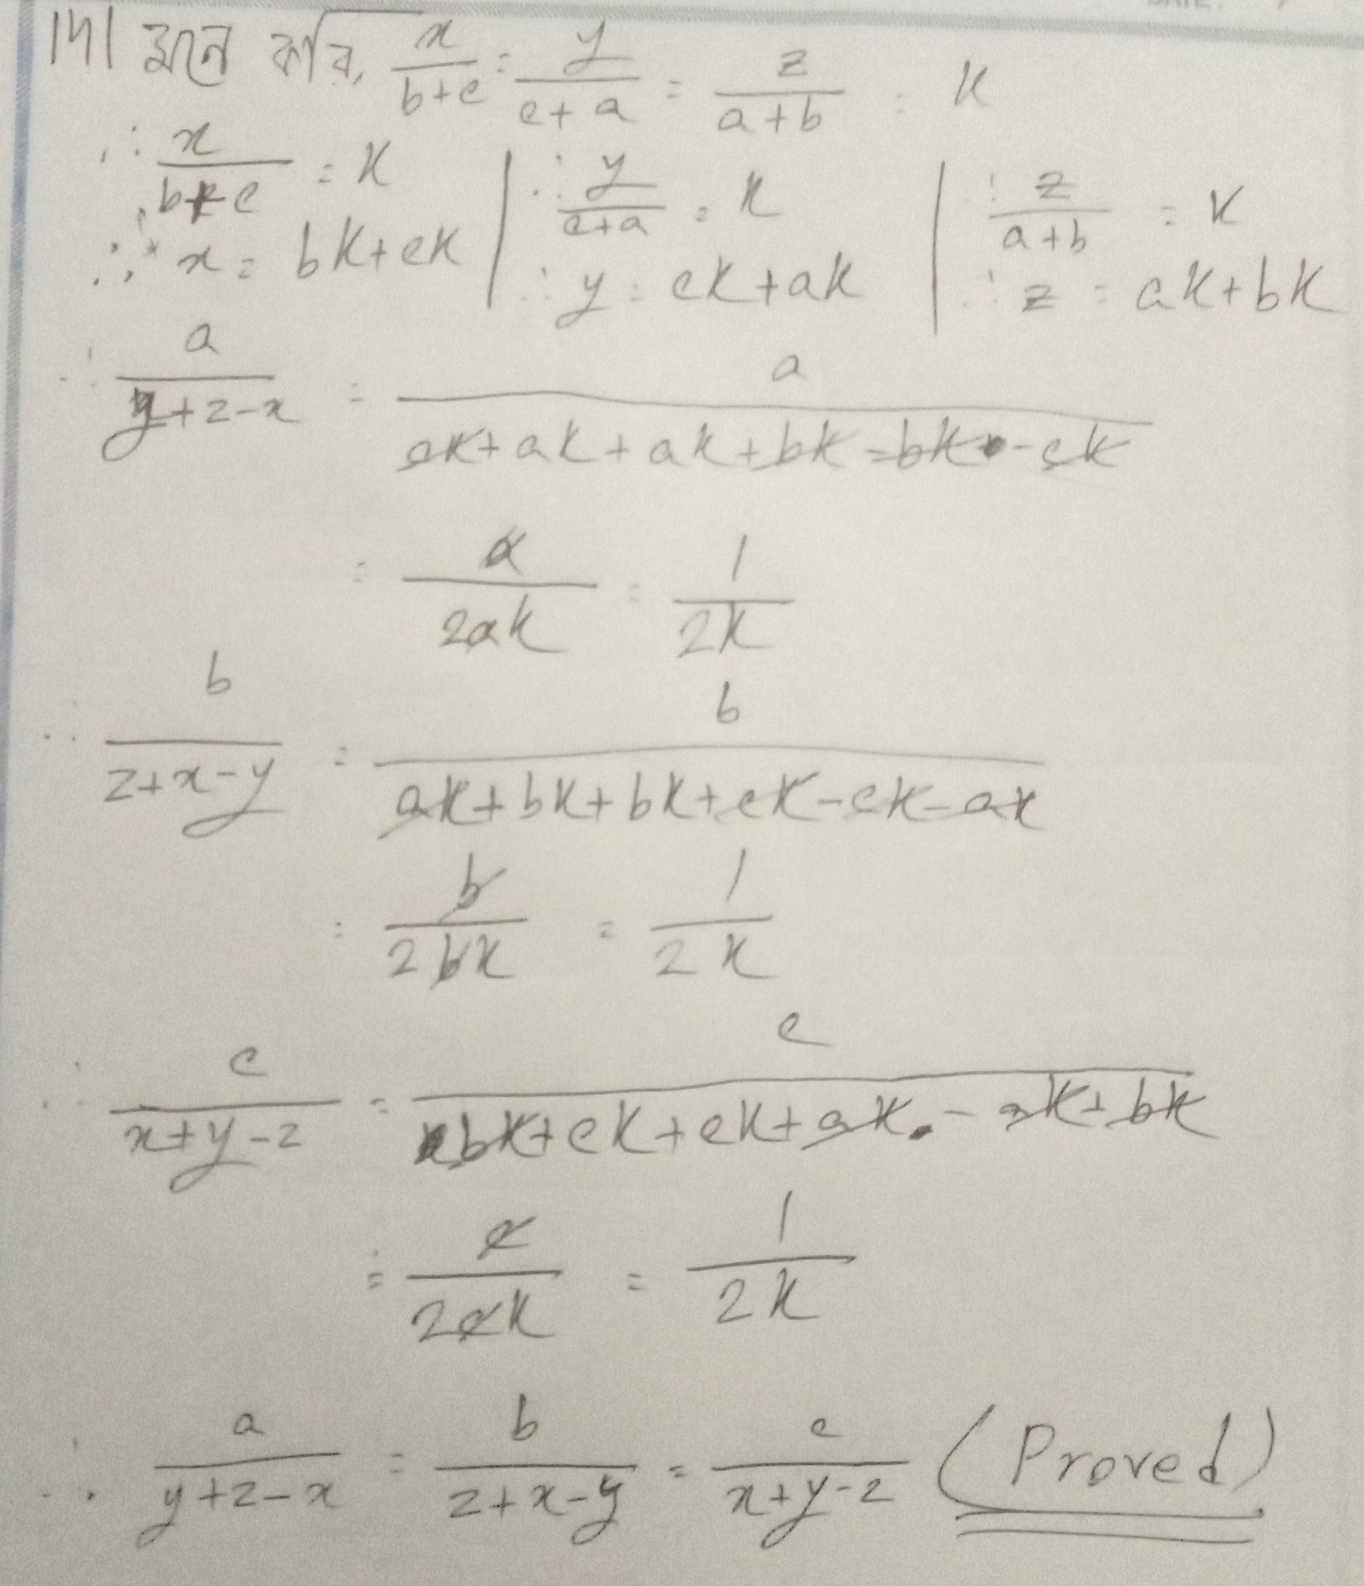 14| মনে করি, x/b+c = y/c+a = z/a+b = K
∴ x/b+c = K | ∴ y/c+a = K | ∴ z/a+b = K
∴ x = bK+cK | ∴ y = cK+aK | ∴ z = aK+bK
∴ a/y+z-x = a/cK+aK+aK+bK-bK-cK
= a/2aK = 1/2K
∴ b/z+x-y = b/aK+bK+bK+cK-cK-aK
= b/2bK = 1/2K
∴ c/x+y-z = c/bK+cK+cK+aK-aK+bK
= c/2cK = 1/2K
∴ a/y+z-x = b/z+x-y = c/x+y-z (Proved)